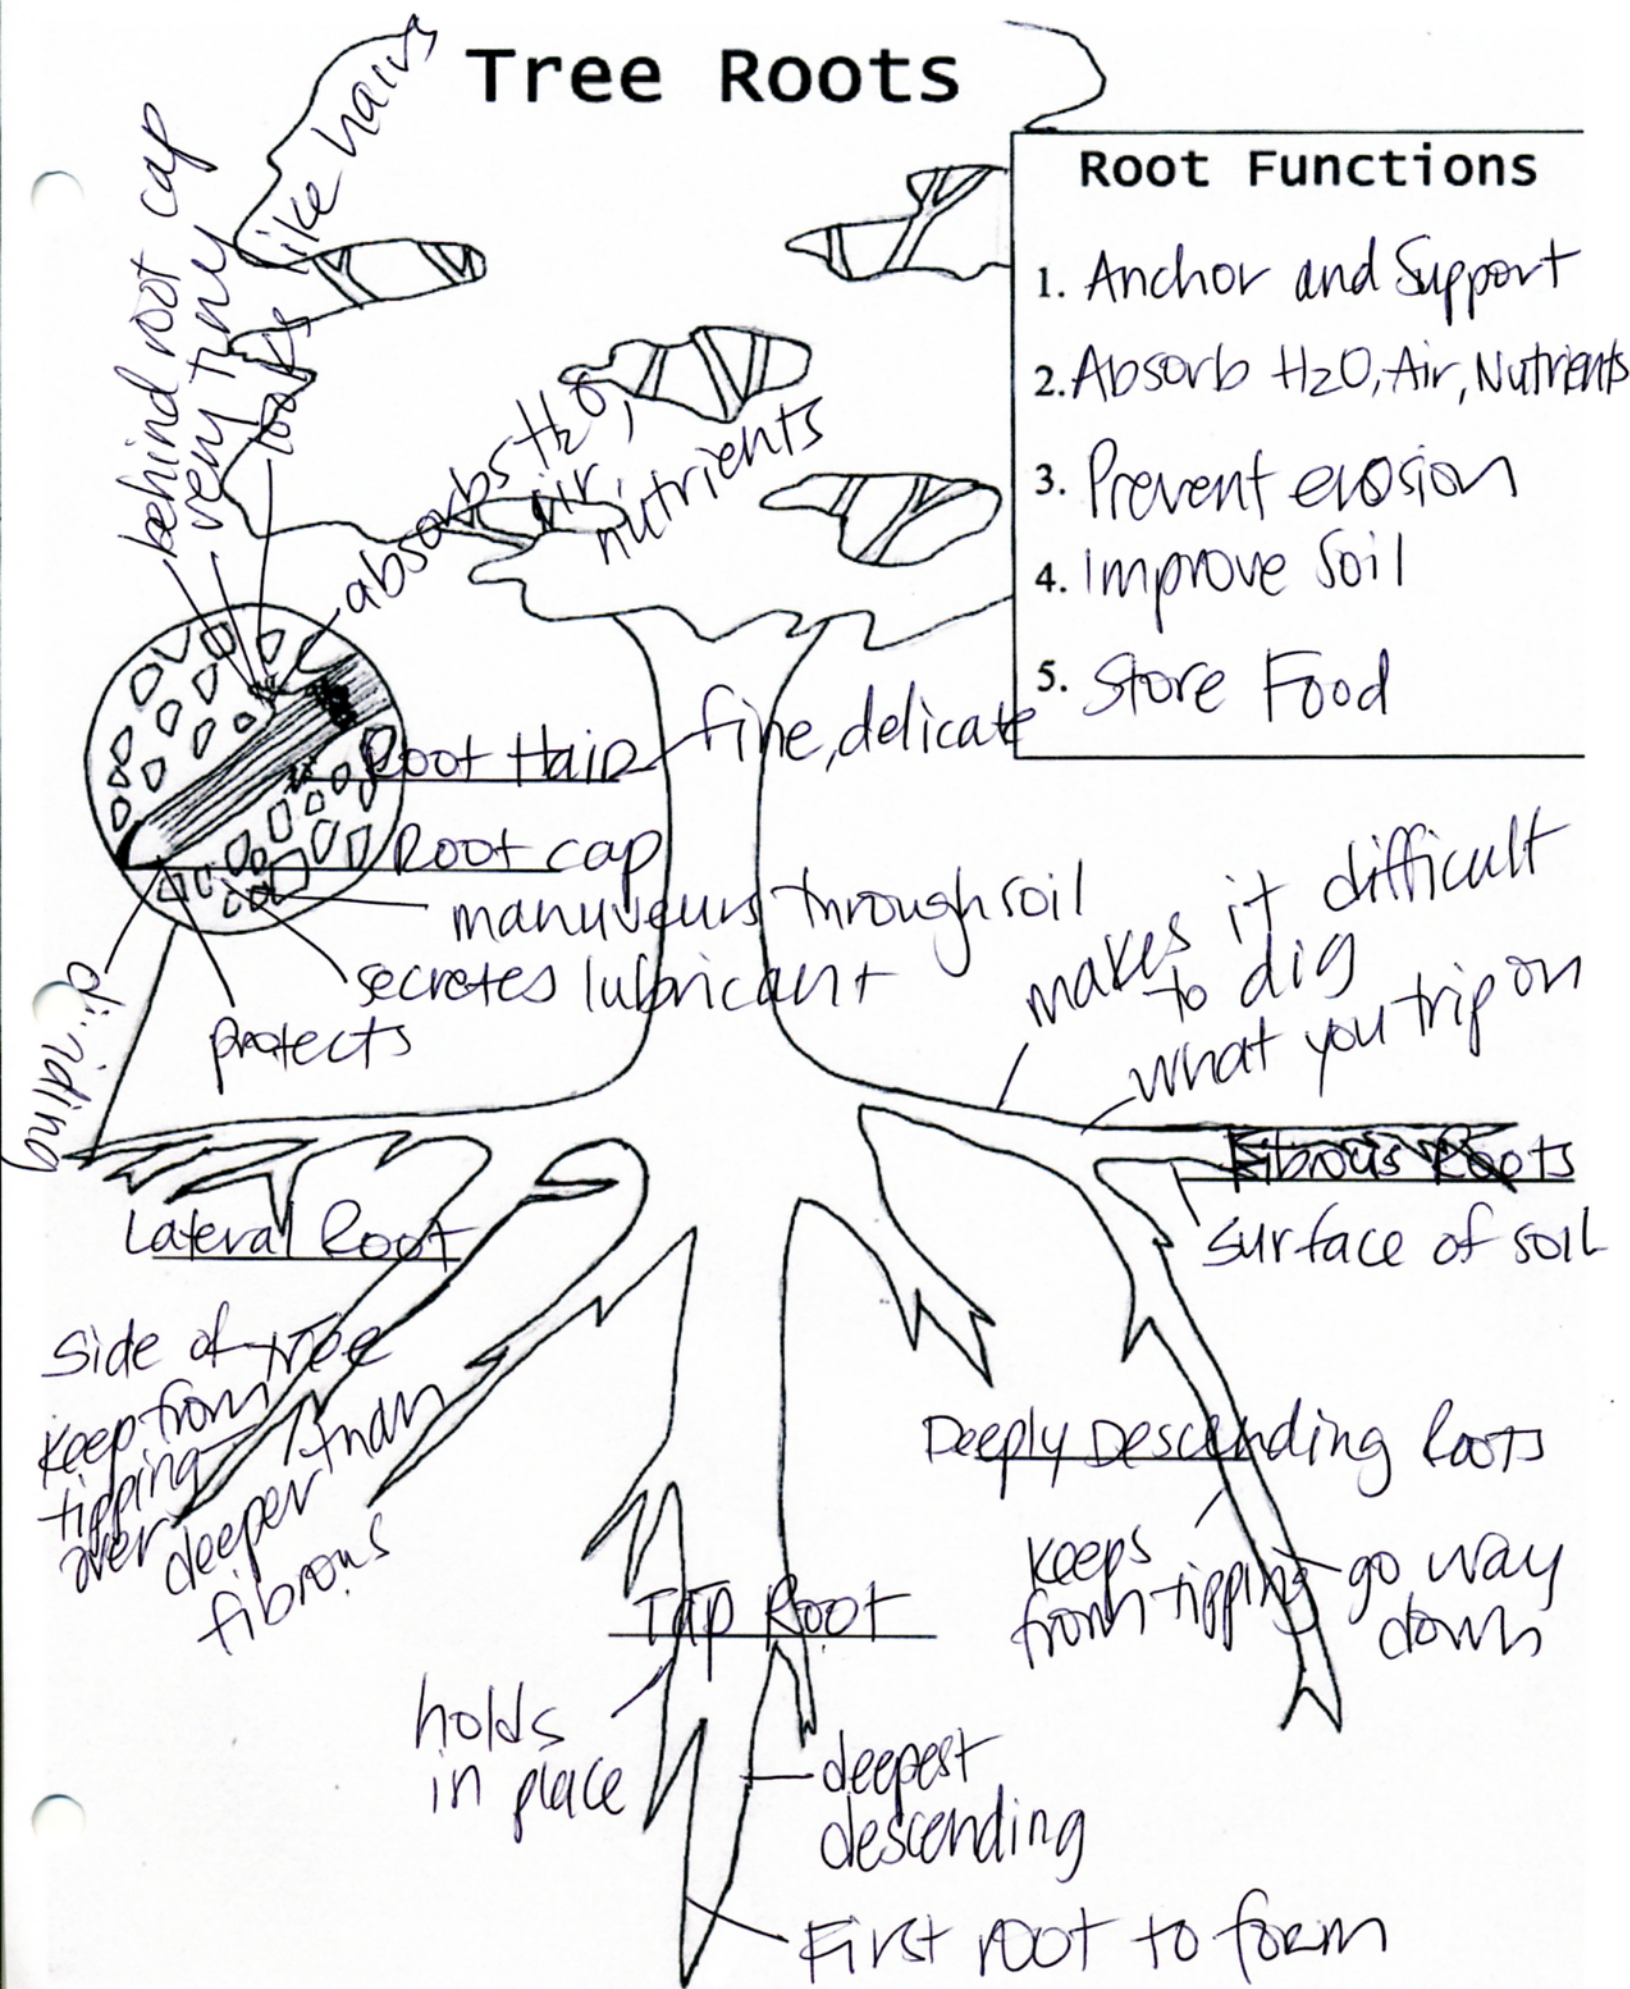 Tree Roots
Root Functions
1. Anchor and Support
2. Absorb H2O, Air, Nutrients
3. Prevent erosion
4. Improve Soil
5. Store Food
behind root cap
very tiny
looks like hairs
absorbs H2O,
air,
nutrients
Root Hair
fine, delicate
Root cap
manuveurs through soil
secretes lubricant
protects
makes it difficult
to dig
what you trip on
Fibrous Roots
surface of soil
Lateral Root
Side of tree
keep from
tipping
over
deeper than
fibrous
Deeply Descending Roots
keeps
from tipping
go way
down
Tap Root
holds
in place
deepest
descending
First root to form